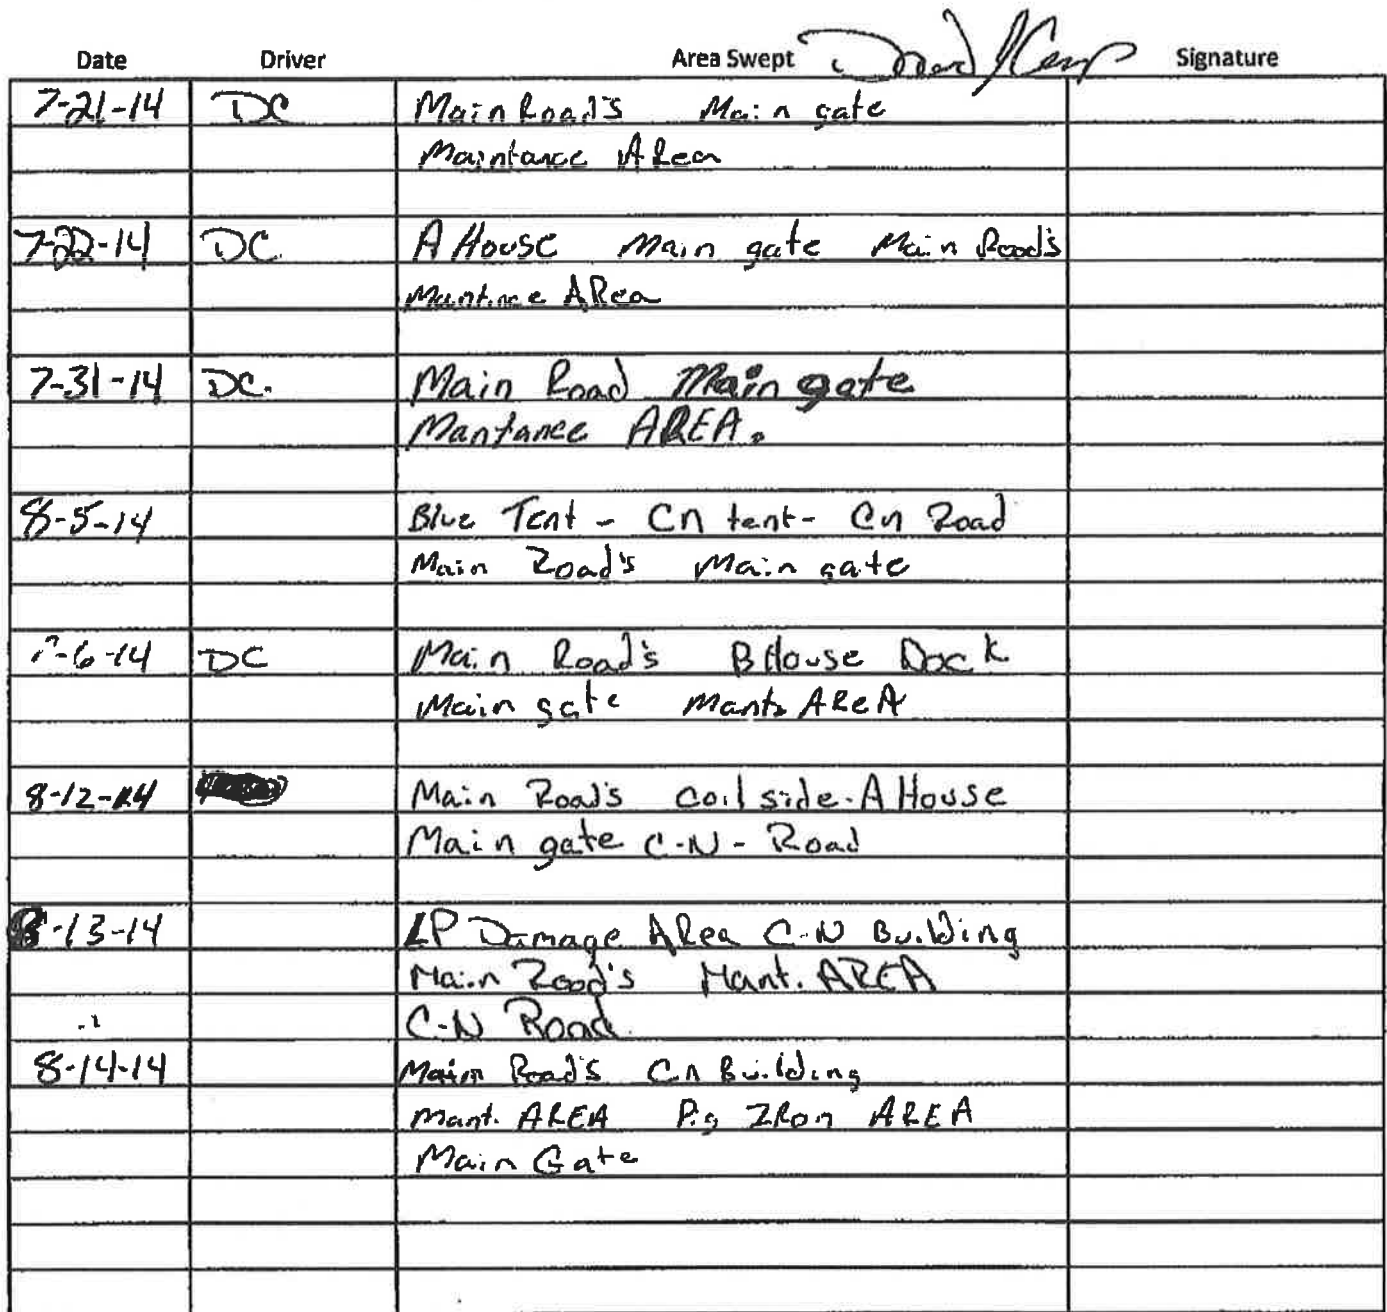 Date Driver Area Swept Signature
7-21-14 DC Main Road's Main gate
Maintance ARea
7-22-14 DC A House Main gate Main Road's
Mantince ARea
7-31-14 DC. Main Road Main gate
Mantance AREA.
8-5-14 Blue Tent - Cn tent - Cn Road
Main Road's Main gate
-6-14 DC Main Road's B House Dock
Main gate Mant. AReA
8-12-14 Main Road's coil side. A House
Main gate C-N - Road
8-13-14 LP Damage ARea C-N Building
Main Road's Mant. AREA
C-N Road
8-14-14 Main Road's Cn Building
Mant. AREA Pig IRon AREA
Main Gate